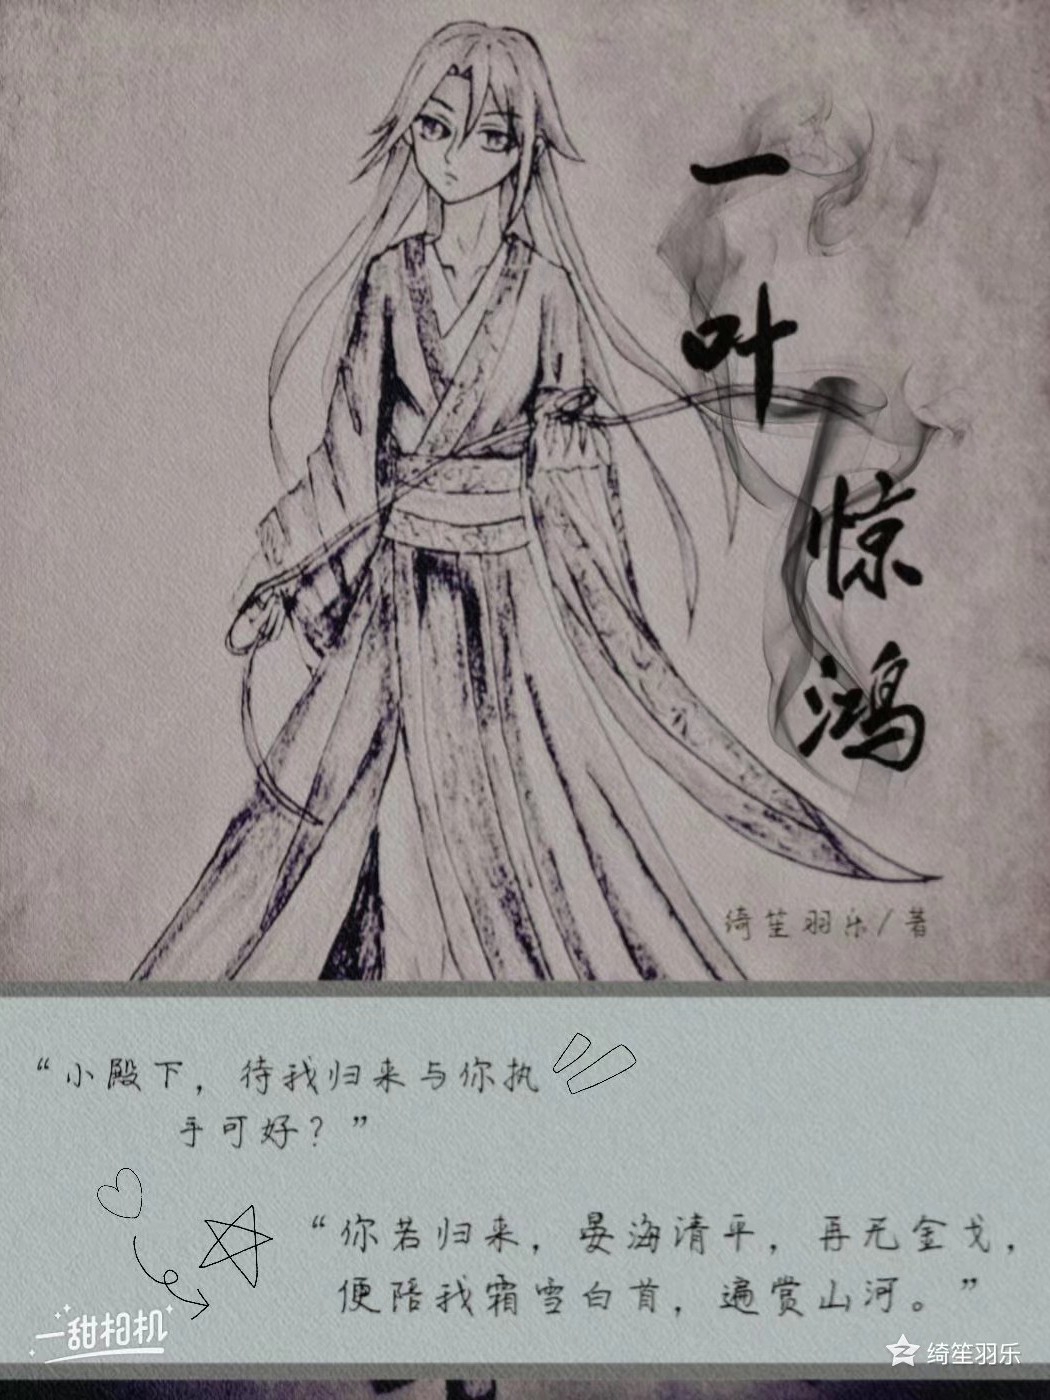 一叶惊鸿
绮笙羽乐/著
“小殿下，待我归来与你执
手可好？”
“你若归来，晏海清平，再无金戈，
便陪我霜雪白首，遍赏山河。”
一甜相机
绮笙羽乐